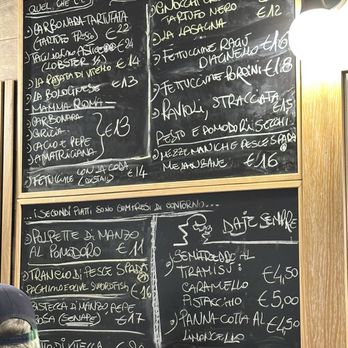 QUEL CHE C'È
CARBONADA TARTUFATA
(TARTUFO FRESCO) €22
€24
(LOBSTER !!)
LA POTATA DI VITELLO €14
LA BOLOGNESE €13
MAMMA ROMA
CARBONARA
GRICIA
CACIO E PEPE
AMATRICIANA
€13
FETTUCINE CON LA CODA
(OXTAIL) €14
GNOCCHI
TARTUFO NERO €12
LA LASAGNA
FETTUCCINE RAGÙ
D'AGNELLO €16
FETTUCCINE PORCINI €18
RAVIOLI, STRACCIATA, €15
PESTO E POMODORI SECCHI
MEZZE MANICHE PESCE SPADA
MELANZANE €16
...I SECONDI PIATTI SONO COMPRESI DI CONTORNO...
POLPETTE DI MANZO
AL POMODORO €11
TRANCIO DI PESCE SPADA
PACHINO E OLIVE SWORDFISH €16
BISTECCA DI MANZO PEPE
ROSA €17
DI VITELLA
DAJE SEMPRE
SEMIFREDDO AL
TIRAMISU €4,50
CARAMELLO
PISTACCHIO €5,00
PANNA COTTA AL €4,50
LIMONCELLO